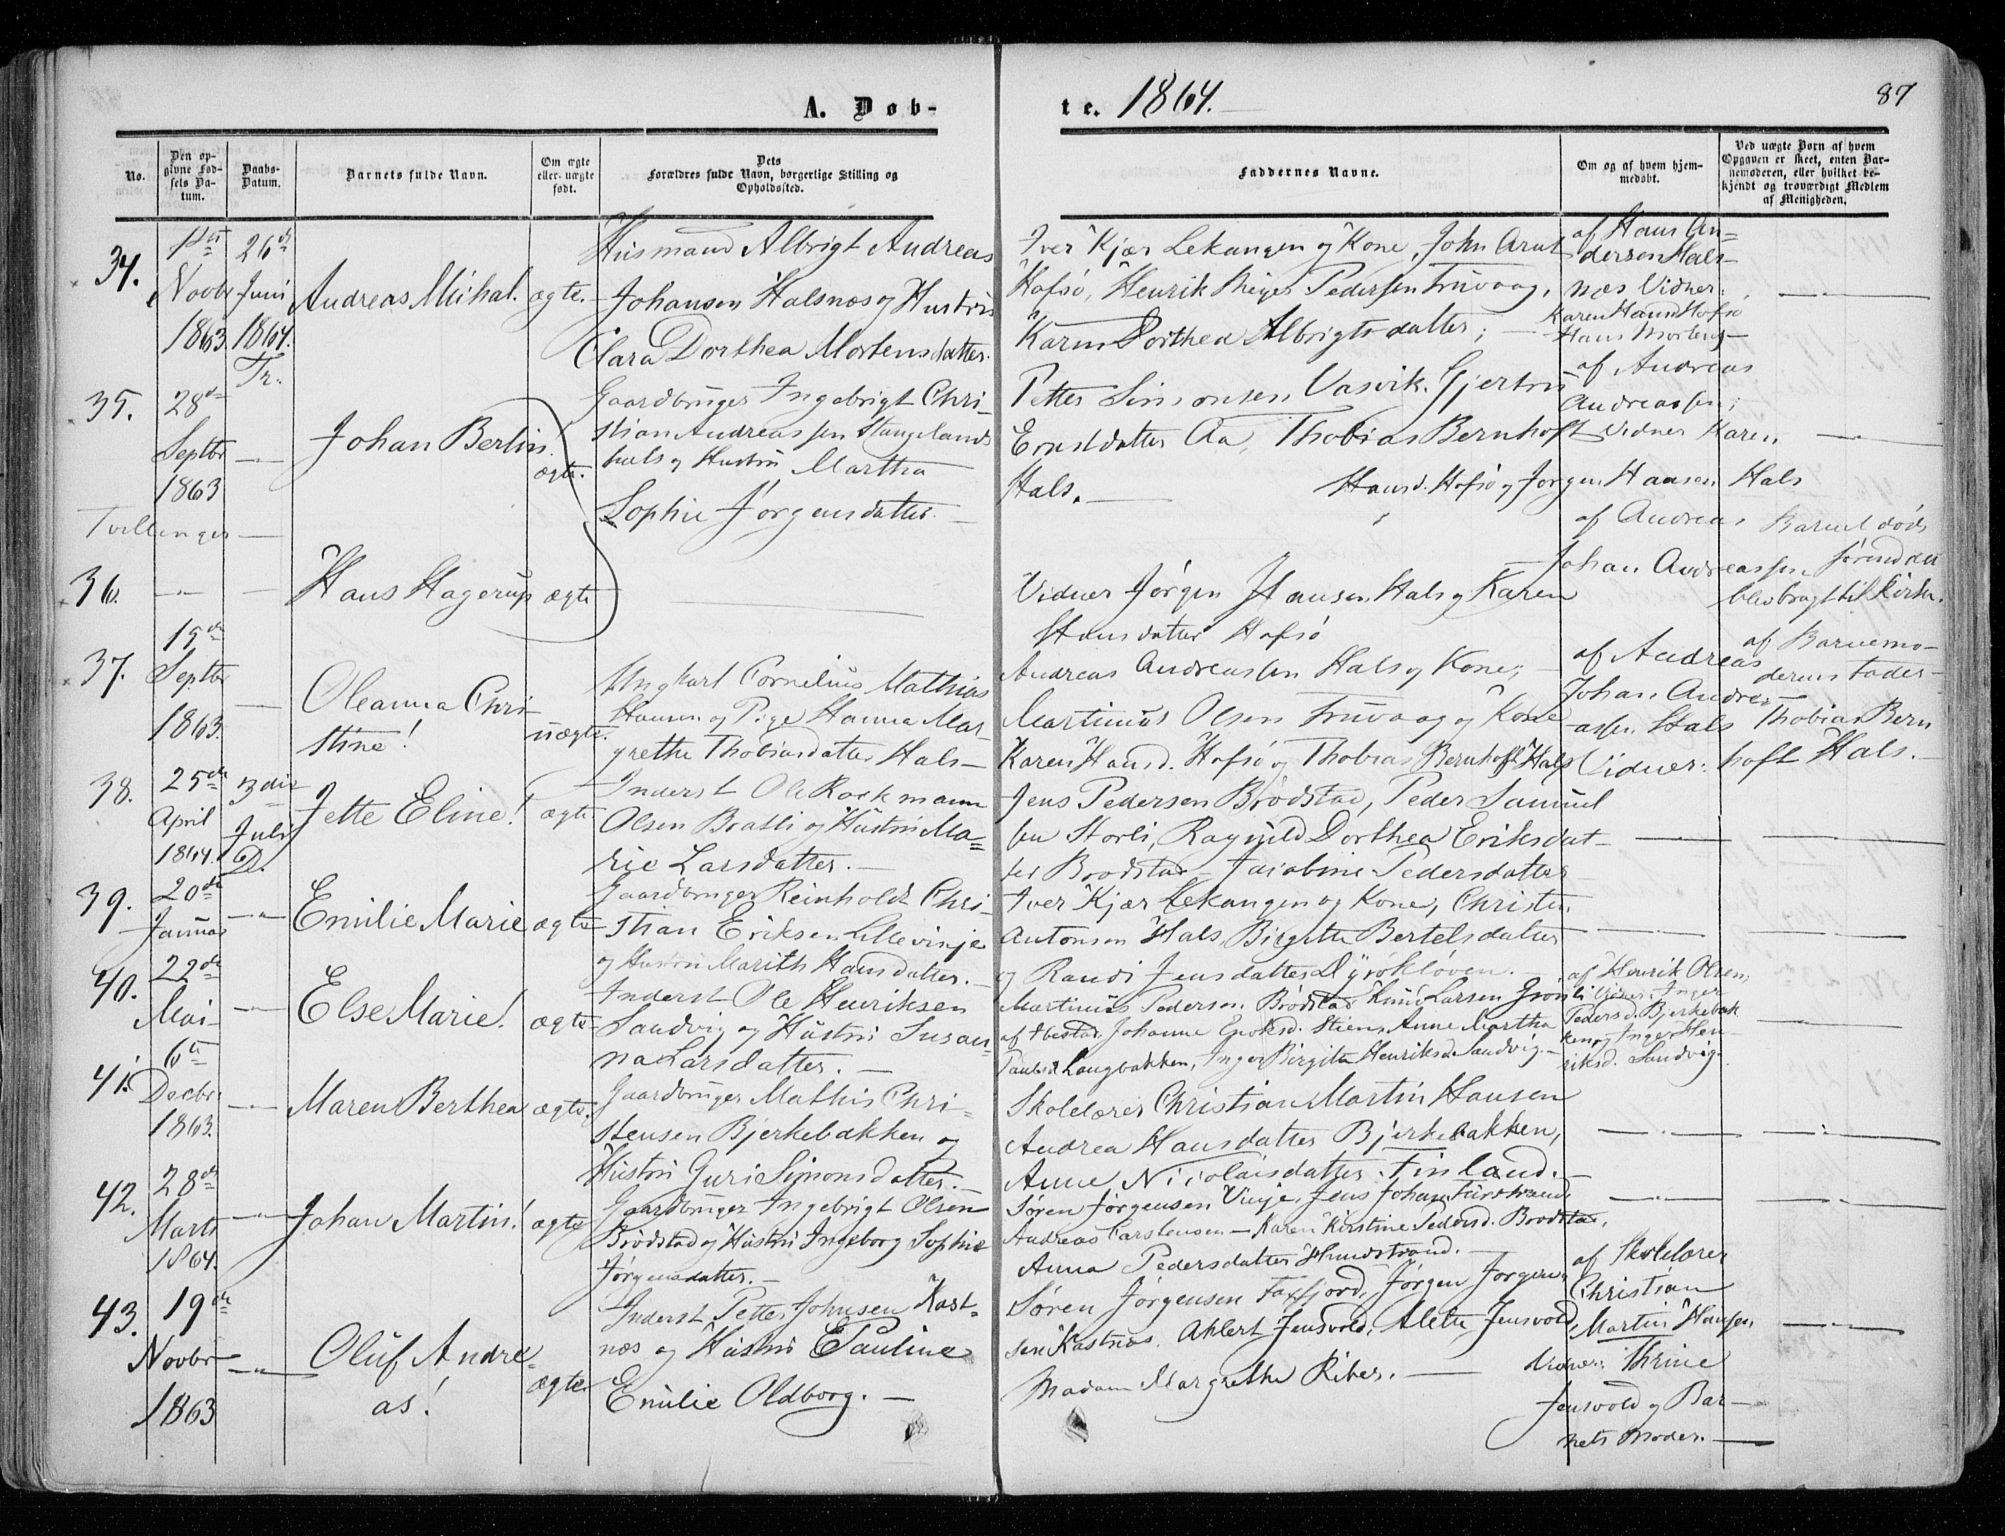 A. Døb-
te. 1864.
87
No.
Den op-
givne Fød-
sels Da-
tum.
Daabs-
Datum.
Barnets fulde Navn.
Om ægte
eller uægte
født.
Dets
Forældres fulde Navn, borgerlige Stilling og
Opholdssted.
Faddernes Navne.
Om og af hvem hjem-
medøbt.
Ved uægte Børn af hvem
Opgaven er skeet, enten Bar-
nemoderen, eller hvilket be-
kjendt og troværdigt Medlem
af Menigheden.
34.
1ste
Novbr
1863
26de
Juni
1864.
Tr.
Andreas Mikal.
ægte.
Husmand Albrigt Andreas
Johansen Halsnæs og Hustru
Clara Dorthea Mortensdatter.
Iver Kjær Lekangen og Kone, John Arnt
Hofsø, Henrik Meyer Pedersen Truvaag,
Karen Dorthea Albrigtsdatter;
af Hans An=
dersen Hals-
næs Vidner:
Karen Hansd Hofsø
Hans Mortens
35.
28de
Septbr
1863
Johan Bertin!
ægte.
Gaardbruger Ingebrigt Chri-
stian Andreassen Stangelands
hals og Hustru Martha
Sophie Jørgensdatter.
Petter Simonsen Vasvik. Gjertru
Ernstdatter Aa, Thobias Bernhoft
Hals.
af Andreas
Andreassen;
Vidner Karen
Hansd. Hofsø og Jørgen Hansen Hals
Tvillinger
36.
Hans Hagerup
ægte
Vidner Jørgen Hansen Hals og Karen
Hansdatter Hofsø
af Andreas
Johan Andreassen
Barnet døde
førend det
blev bragt til Kirken.
37.
15de
Septbr
1863.
Oleanna Chri-
stine!
uægte.
Ungkarl Cornelius Mathias
Hansen og Pige Hanna Mar-
grethe Thobiasdatter Hals
Andreas Andreassen Hals og Kone;
Martinus Olsen Truvaag og Kone
Karen Hansd. Hofsø og Thobias Bernhoft Hals
af Andreas
Johan Andre-
assen Hals
Vidner:
af Barnemo-
derens Fader
Thobias Bern
hoft Hals.
38.
25de
April
1864.
3die
Juli
D.
Jette Eline!
ægte
Inderst Ole Rockmann
Olsen Bratli og Hustru Ma=
rie Larsdatter.
Jens Pedersen Brødstad, Peder Samuel
sen Storli, Ragnild Dorthea Eriksdat-
ter Brodstad Jacobine Pedersdatter
39.
20de
Januar
Emilie Marie
ægte
Gaardbruger Reinholdt Chri-
stian Eriksen Lillevinje
og Hustru Marith Hansdatter.
Iver Kjær Lekangen og Kone, Christen
Antonsen Hals Birgitte Bertelsdatter
og Randi Jensdatter Dyrøkløven.
40.
22de
Mai
Else Marie!
ægte
Inderst Ole Henriksen
Sandvig og Hustru Susan-
na Larsdatter.
Martinus Pedersen Brødstad Knud Larsen Grønli
af Ibestad. Johanne Enoksd. Stien, Anne Martha
Paulsd Langbakken, Inger Birgitte Henriksd. Sandvig.
af Henrik Olsen,
Vidner Inger
Pedersd. Bjerkebak
ken og Inger Hen
riksd. Sandvig.
41.
6te
Decbr
1863.
Maren Berthea
ægte.
Gaardbruger Mathis Chri-
stensen Bjerkebakken og
Hustru Guri Simonsdatter.
Skolelærer Christian Martin Hansen
Andrea Hansdatter Bjerkebakken,
Anne Nicolaisdatter Finland.
42.
28de
Marts
1864.
Johan Martin!
ægte
Gaardbruger Ingebrigt Olsen
Brodstad og Hustru Ingeborg Sophie
Jørgensdatter.
Søren Jørgensen Vinje, Jens Johan Furstrand,
Andreas Carstensen - Karen Kirstine Pedersd. Brodstad,
Anna Pedersdatter Hundstrand.
43.
19de
Novbr
1863
Oluf Andre-
as!
ægte
Inderst Petter Johnsen Kast-
næs og Hustru Pauline
Emilie Oldborg.
Søren Jørgensen Faxfjord, Jørgen Jørgen
sen Kastnæs. Ahlert Jensvold, Alette Jensvold,
Madam Margrethe Riber.
af Skolelærer
Christian
Martin Hansen
Vidner: Thrine
Jensvold og Bar-
nets Moder.